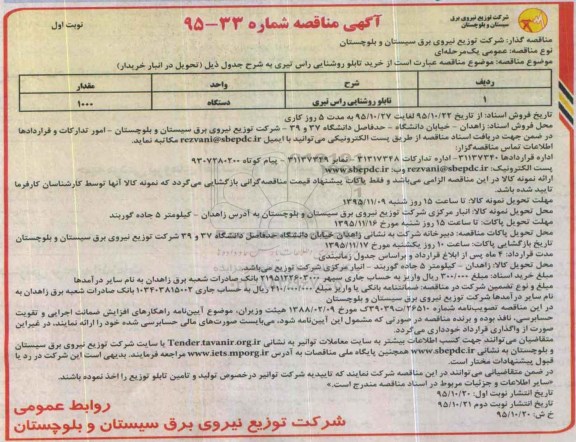 شرکت توزیع نیروی برق
سیستان و بلوچستان
آگهی مناقصه شماره ۳۳-۹۵
نوبت اول
مناقصه گذار: شرکت توزیع نیروی برق سیستان و بلوچستان
نوع مناقصه: عمومی یک‌مرحله‌ای
موضوع مناقصه: موضوع مناقصه عبارت است از خرید تابلو روشنایی راس تیری به شرح جدول ذیل (تحویل در انبار خریدار)
ردیف شرح واحد مقدار
۱ تابلو روشنایی راس تیری دستگاه ۱۰۰۰
تاریخ فروش اسناد: از تاریخ ۹۵/۱۰/۲۲ لغایت ۹۵/۱۰/۲۷ به مدت ۵ روز کاری
محل فروش اسناد: زاهدان - خیابان دانشگاه - حدفاصل دانشگاه ۳۷ و ۳۹ - شرکت توزیع نیروی برق سیستان و بلوچستان - امور تدارکات و قراردادها
در ضمن جهت دریافت اسناد مناقصه از طریق پست الکترونیکی می‌توانید با ایمیل rezvani@sbepdc.ir مکاتبه نماید.
اطلاعات تماس مناقصه‌گزار:
اداره قراردادها: ۳۱۱۳۷۳۴۰ - اداره تدارکات ۳۱۱۳۷۳۴۸ - نمابر ۳۱۱۳۷۳۴۹ - پیام کوتاه ۹۳۰۷۳۸۰۲۰۰
پست الکترونیک: rezvani@sbepdc.ir وب: www.sbepdc.ir
ارائه نمونه کالا در این مناقصه الزامی می‌باشد و فقط پاکات پیشنهاد قیمت مناقصه‌گرانی بازگشایی می‌گردد که نمونه کالا آنها توسط کارشناسان کارفرما
تایید شده باشد.
مهلت تحویل نمونه کالا: تا ساعت ۱۵ روز شنبه ۱۳۹۵/۱۱/۰۹
محل تحویل نمونه کالا: انبار مرکزی شرکت توزیع نیروی برق سیستان و بلوچستان به آدرس زاهدان - کیلومتر ۵ جاده گوربند
مهلت تحویل پاکات: تا ساعت ۱۵ روز شنبه مورخ ۱۳۹۵/۱۱/۱۶
محل تحویل پاکات مناقصه: دبیرخانه شرکت به نشانی زاهدان خیابان دانشگاه حدفاصل دانشگاه ۳۷ و ۳۹ شرکت توزیع نیروی برق سیستان و بلوچستان
تاریخ بازگشایی پاکات: ساعت ۱۰ روز یکشنبه مورخ ۱۳۹۵/۱۱/۱۷
مدت قرارداد: ۴ ماه پس از ابلاغ قرارداد و براساس جدول زمانبندی.
محل تحویل کالا: زاهدان - کیلومتر ۵ جاده گوربند - انبار مرکزی شرکت توزیع می‌باشد.
مبلغ خرید اسناد: مبلغ ۳۰۰/۰۰۰ ریال واریز به حساب جاری سپهر بانک صادرات شعبه برق زاهدان به نام سایر درآمدها
مبلغ و نوع تضمین شرکت در مناقصه: ضمانتنامه بانکی یا واریز مبلغ ریال به حساب جاری ۱۰۳۴۰۳۸۱۵۰۰۲ بانک صادرات شعبه برق زاهدان به
نام سایر درآمدها شرکت توزیع نیروی برق سیستان و بلوچستان
در این مناقصه تصویب‌نامه شماره ک مورخ ۱۳۸۸/۰۲/۰۹ هیئت وزیران، موضوع آیین‌نامه راهکارهای افزایش ضمانت اجرایی و تقویت
حسابرسی، نافذ بوده و برنده مناقصه در صورتی که مشمول این آیین‌نامه شود، می‌بایست صورت‌های مالی حسابرسی شده خود را ارائه نمایند، در غیر این
صورت از واگذاری قرارداد خودداری می‌گردد.
متقاضیان می‌توانند جهت کسب اطلاعات بیشتر به سایت معاملات توانیر به نشانی Tender.tavanir.org.ir یا سایت شرکت توزیع نیروی برق سیستان
و بلوچستان به نشانی www.sbepdc.ir همچنین پایگاه ملی مناقصات به آدرس www.iets.mporg.ir مراجعه فرمایند. بدیهی است این شرکت در رد یا
قبول پیشنهادات مختار است.
در ضمن متقاضیانی می‌توانند در این مناقصه شرکت نمایند که تاییدیه شرکت توانیر درخصوص تولید و تامین تابلو توزیع را اخذ نموده باشند.
«سایر اطلاعات و جزئیات مربوط در اسناد مناقصه مندرج است.»
تاریخ انتشار نوبت اول: ۹۵/۱۰/۲۰
تاریخ انتشار نوبت دوم ۹۵/۱۰/۲۱
خ ش: ۹۵/۱۰/۲۰
روابط عمومی
شرکت توزیع نیروی برق سیستان و بلوچستان